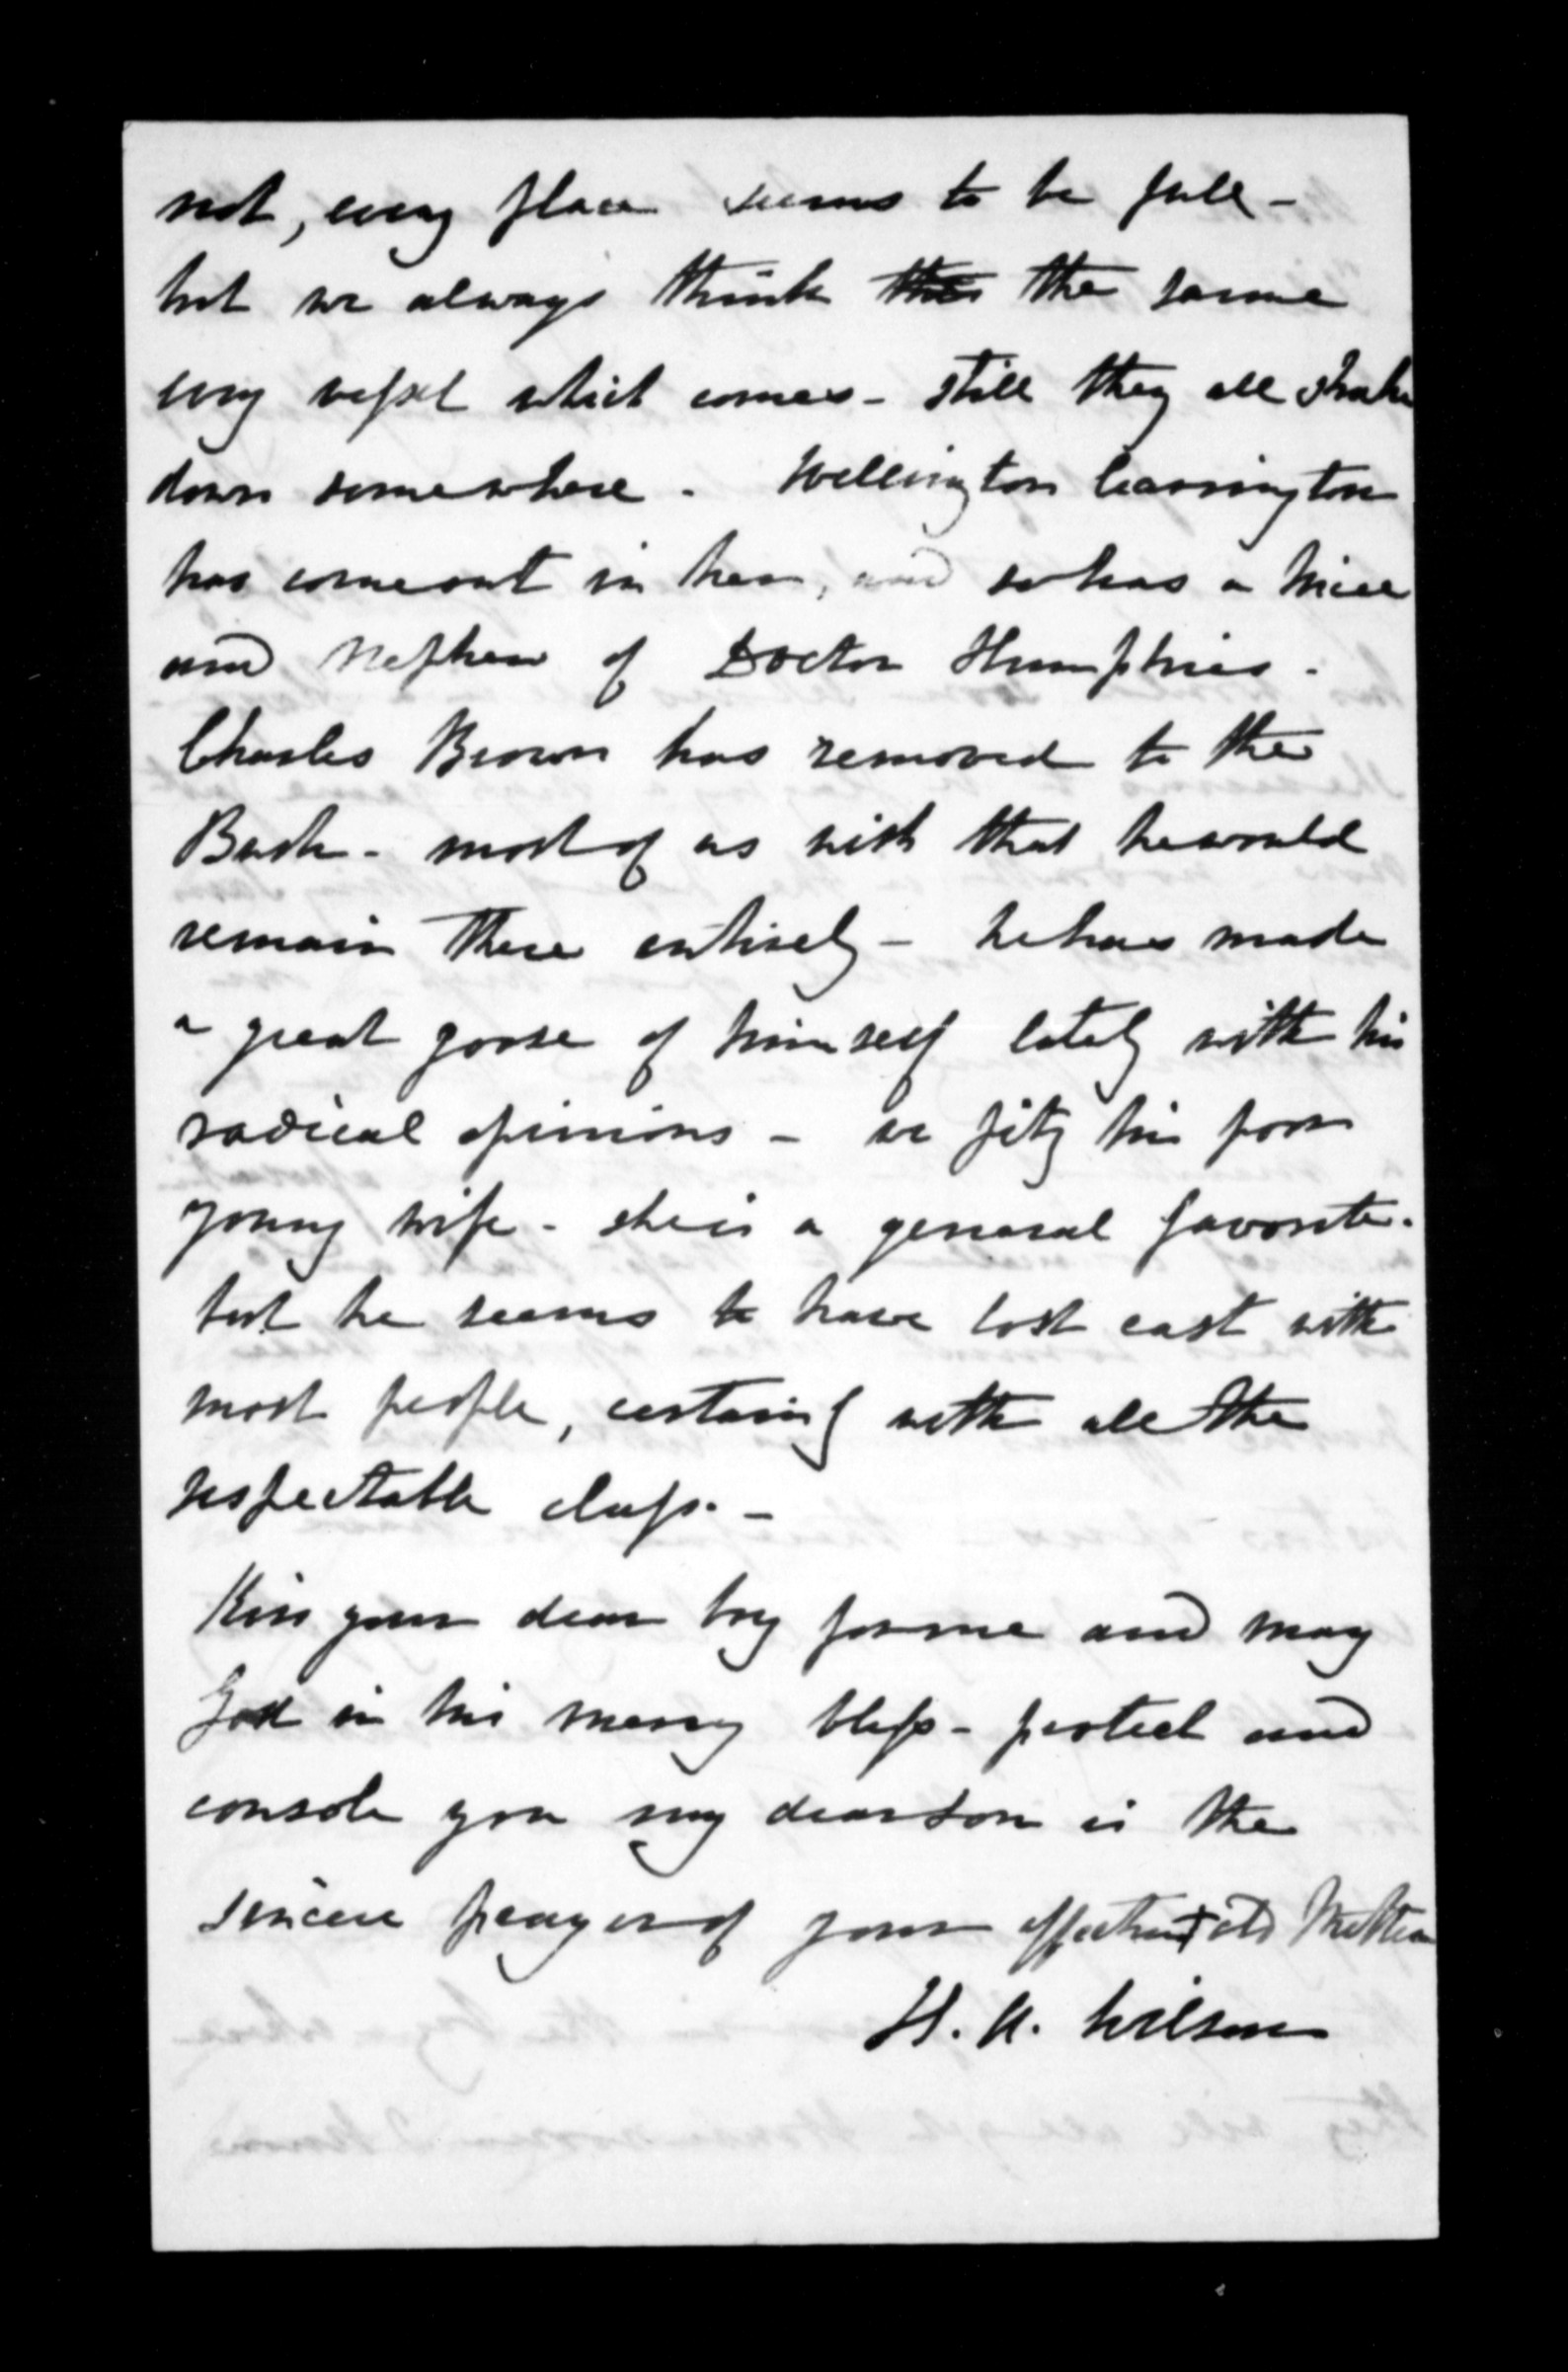 not, every place seems to be full -
but we always think this the same
every vessel which comes - still they all shake
down somewhere - Wellington Carrington
has come out in her, and so has a Niece
and Nephew of Doctor Humphries -
Charles Brown has removed to the
Bush - most of us wish that he would
remain there entirely - he has made
a great goose of himself lately with his
radical opinions - we pity his poor
young wife - she is a general favorite -
but he seems to have lost cast with
most people, certainly with all the
respectable class. -
Kiss your dear boy for me and may
God in his mercy bless - protect and
console you my dear Son is the
sincere prayer of your old Mother
H. A. Wilson